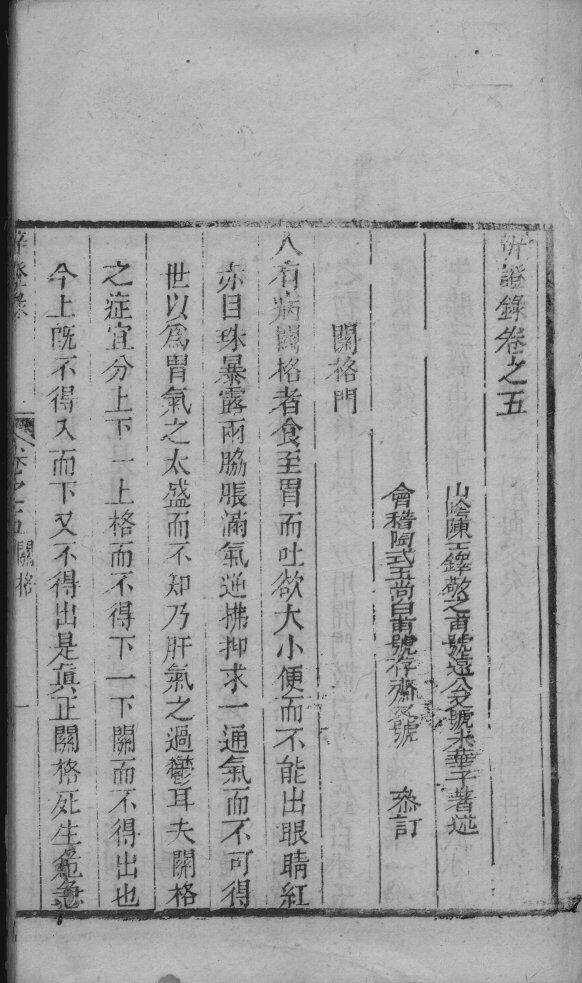 辨證錄卷之五
山陰陳士鐸敬之甫號遠公又號朱華子著述
會稽陶式玉尚白甫號存齋又號　　叅訂
關格門
人有病關格者食至胃而吐欲大小便而不能出眼睛紅
赤目珠暴露兩脇脹滿氣逆拂抑求一通氣而不可得
世以爲胃氣之太盛而不知乃肝氣之過鬱耳夫關格
之症宜分上下一上格而不得下一下關而不得出也
今上既不得入而下又不得出是眞正關格死生危急
辨證錄
卷之五 關格
一